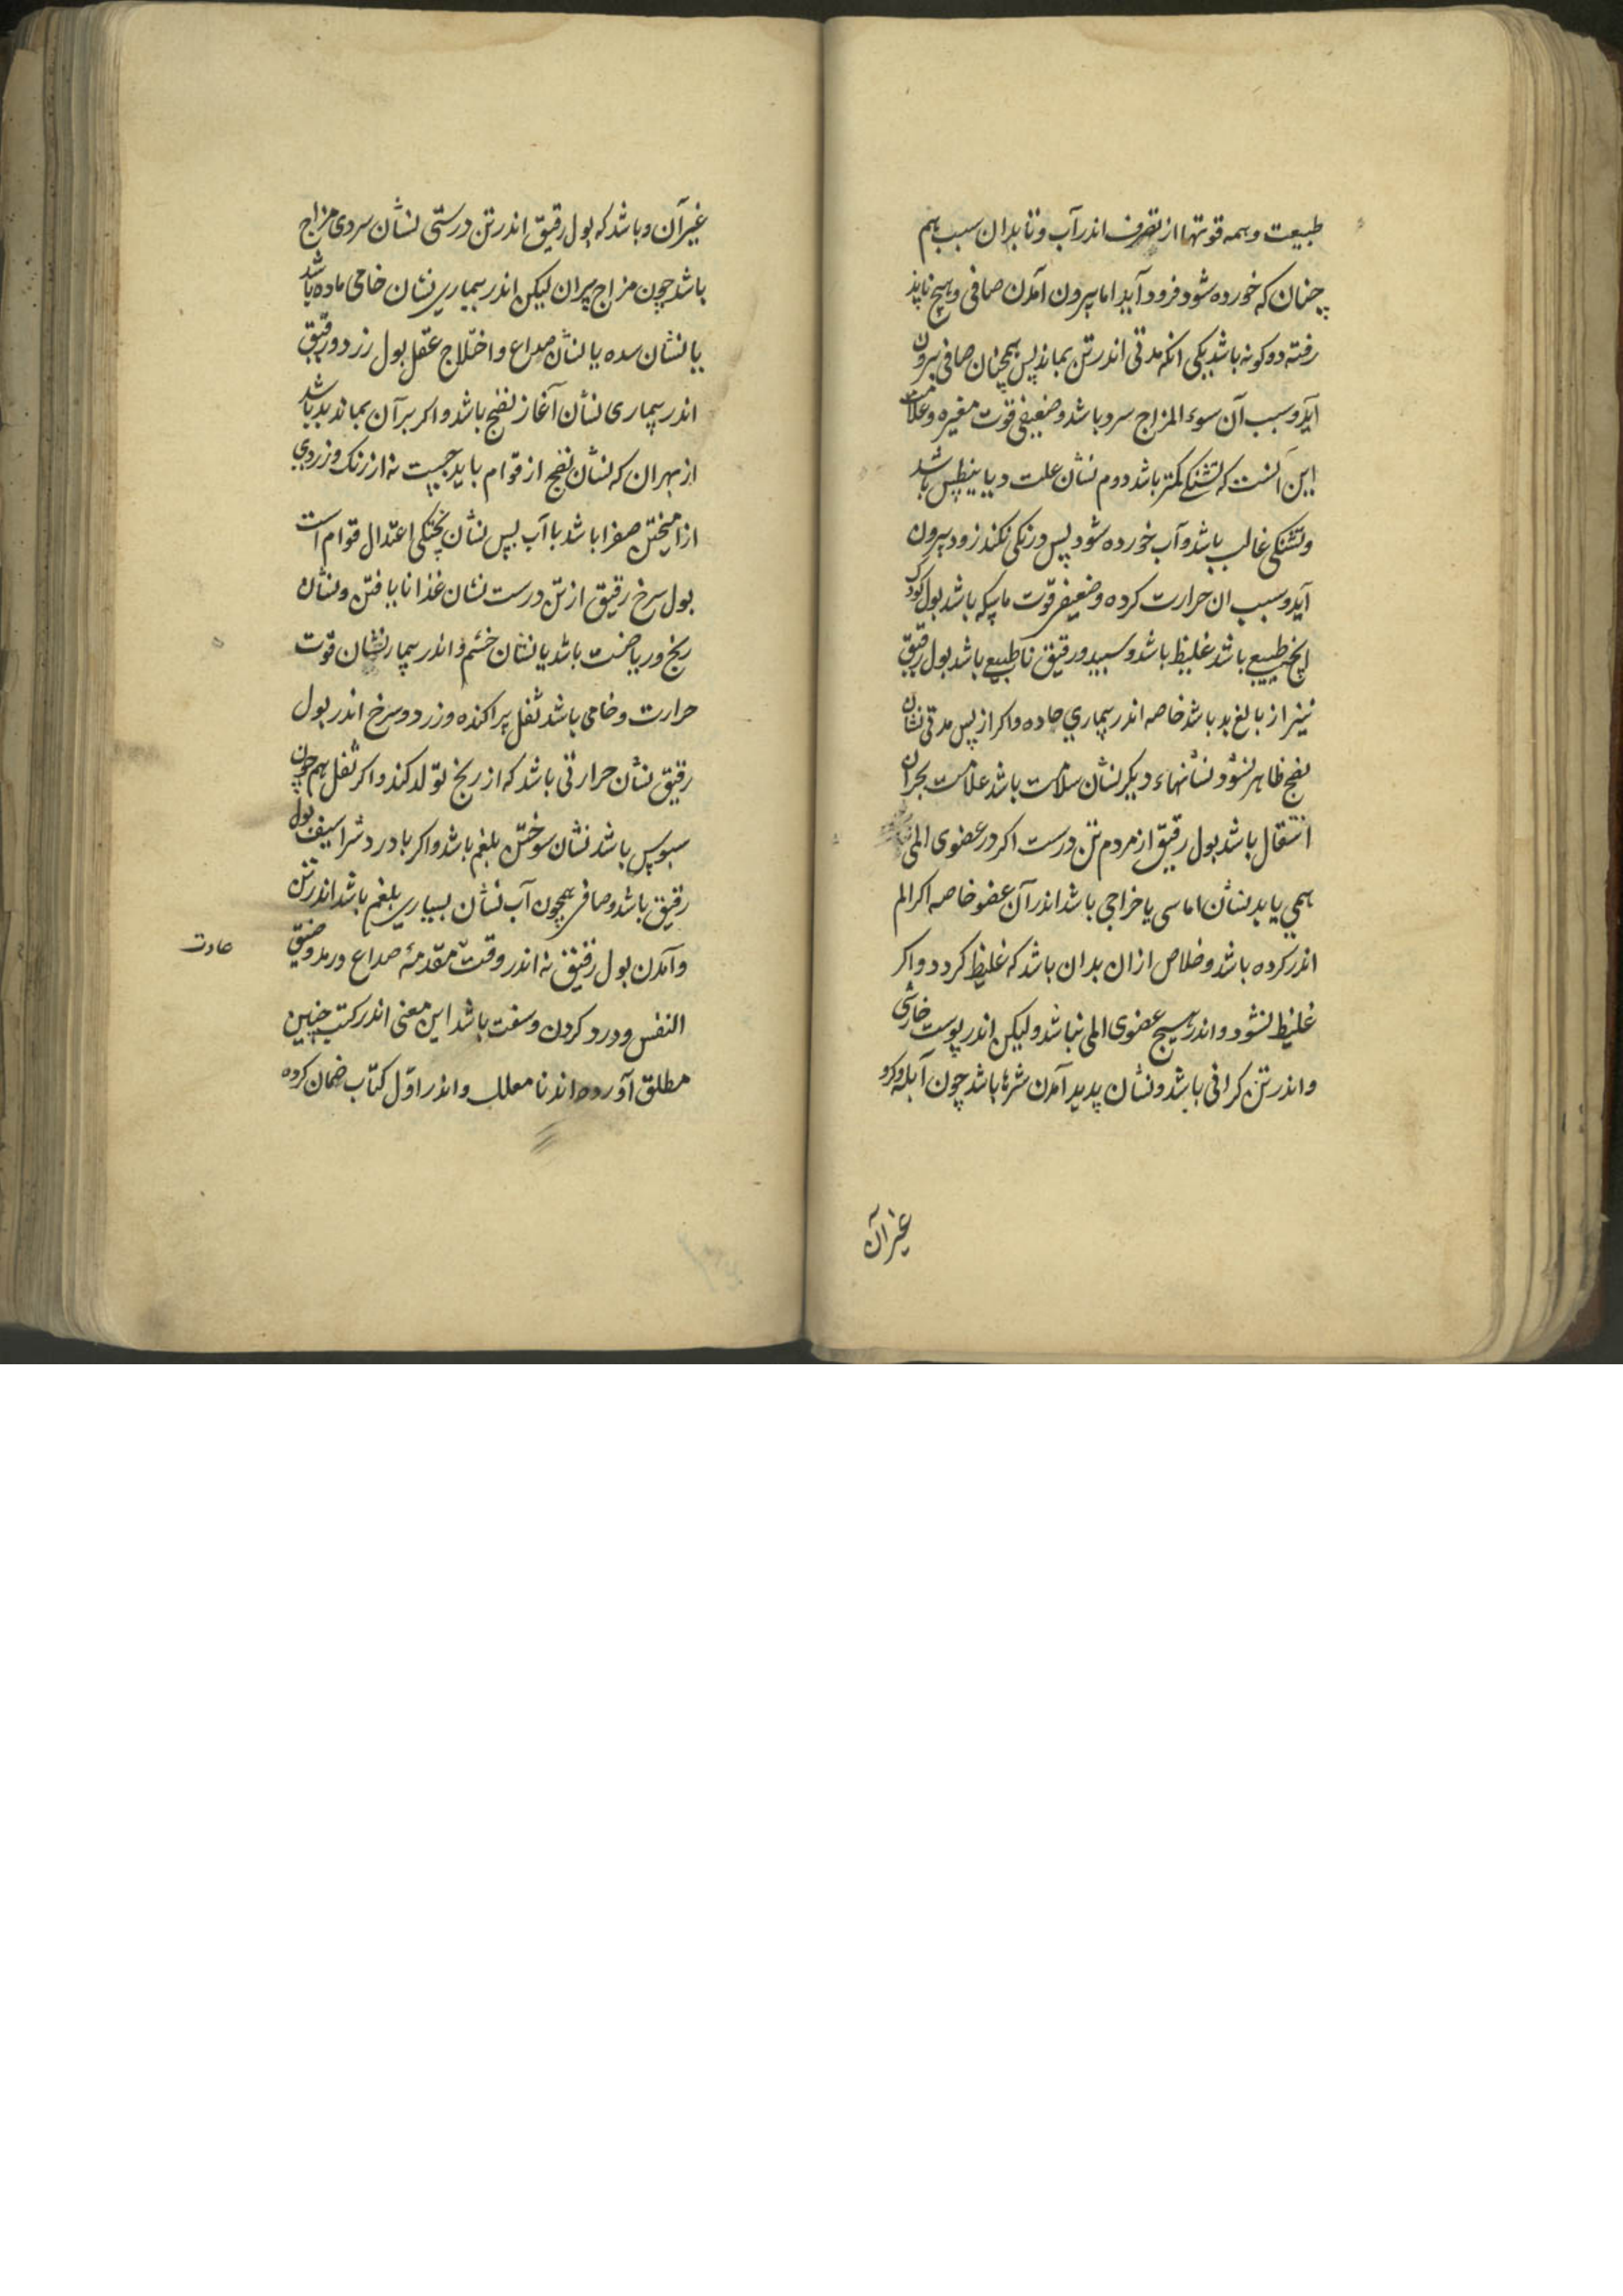 طبیعت و همه قوتها از تصرف اندر آب و تا بدان سبب هم
چنان که خورده شود فرود آید اما بیرون آمدن صافی و هیچ ناپذ
رفته دو کونه باشد یکی انکه مدتی اندر تن بماند پس همچنان صافی بیرون
آید و سبب آن سوء المزاج سرد باشد و ضعیفی قوت مغیره و علامت
این آنست که تشنکی کمتر باشد دوم نشان علت دیابیطس باشد
و تشنکی غالب باشد و آب خورده شود پس درنکی نکند زود بیرون
آید و سبب ان حرارت کرده و ضعیفی قوت ماسکه باشد بول کودک
انچه طبیعی باشد غلیظ باشد و سپید و رقیق ناطبیعی باشد بول رقیق
نیز از بالغ بد باشد خاصه اندر بیماری حاده و اکر از پس مدتی نشان
نضج ظاهر نشود و نشانهاء دیکر نشان سلامت باشد علامت بحران
انتقال باشد بول رقیق از مردم تن درست اکر در عضوی المی
همی یابد نشان اماسی یا خراجی باشد اندر آن عضو خاصه اکر الم
اندر کرده باشد و خلاص ازان بدان باشد که غلیظ کردد و اکر
غلیظ نشود و اندر هیچ عضوی المی نباشد ولیکن اندر پوست خارشی
و اندر تن کرانی باشد و نشان پدید آمدن بشرها باشد چون آبله و کرو
غیر آن
غیر آن و باشد که بول رقیق اندر تن درستی نشان سردی مزاج
باشد چون مزاج پیران لیکن اندر بیماری نشان خامی ماده باشد
یا نشان سده یا نشان صداع و اختلاج عقل بول زرد و رقیق
اندر بیماری نشان آغاز نضج باشد و اکر بر آن بماند بد باشد
از بهر ان که نشان نضج از قوام باید جست نه از رنک و زردی
از امیختن صفرا باشد با آب پس نشان پختکی اعتدال قوام است
بول سرخ رقیق از تن درست نشان غذا نایافتن و نشان
رنج و ریاضت باشد یا نشان خشم و اندر بیمار نشان قوت
حرارت و خامی باشد ثفل پراکنده و زرد و سرخ اندر بول
رقیق نشان حرارتی باشد که از رنج تولد کند و اکر ثفل هم چون
سبوس باشد نشان سوختن بلغم باشد و اکر با درد شراسیف بول
رقیق باشد و صافی همچون آب نشان بسیاری بلغم باشد اندر تن
و آمدن بول رقیق نه اندر وقت مقدمهٔ صداع و رمد و ضیق
عادت
النفس و درد کردن و سفت باشد این معنی اندر کتب چنین
مطلق آورده اند نا معلل و اندر اول کتاب ضمان کرده